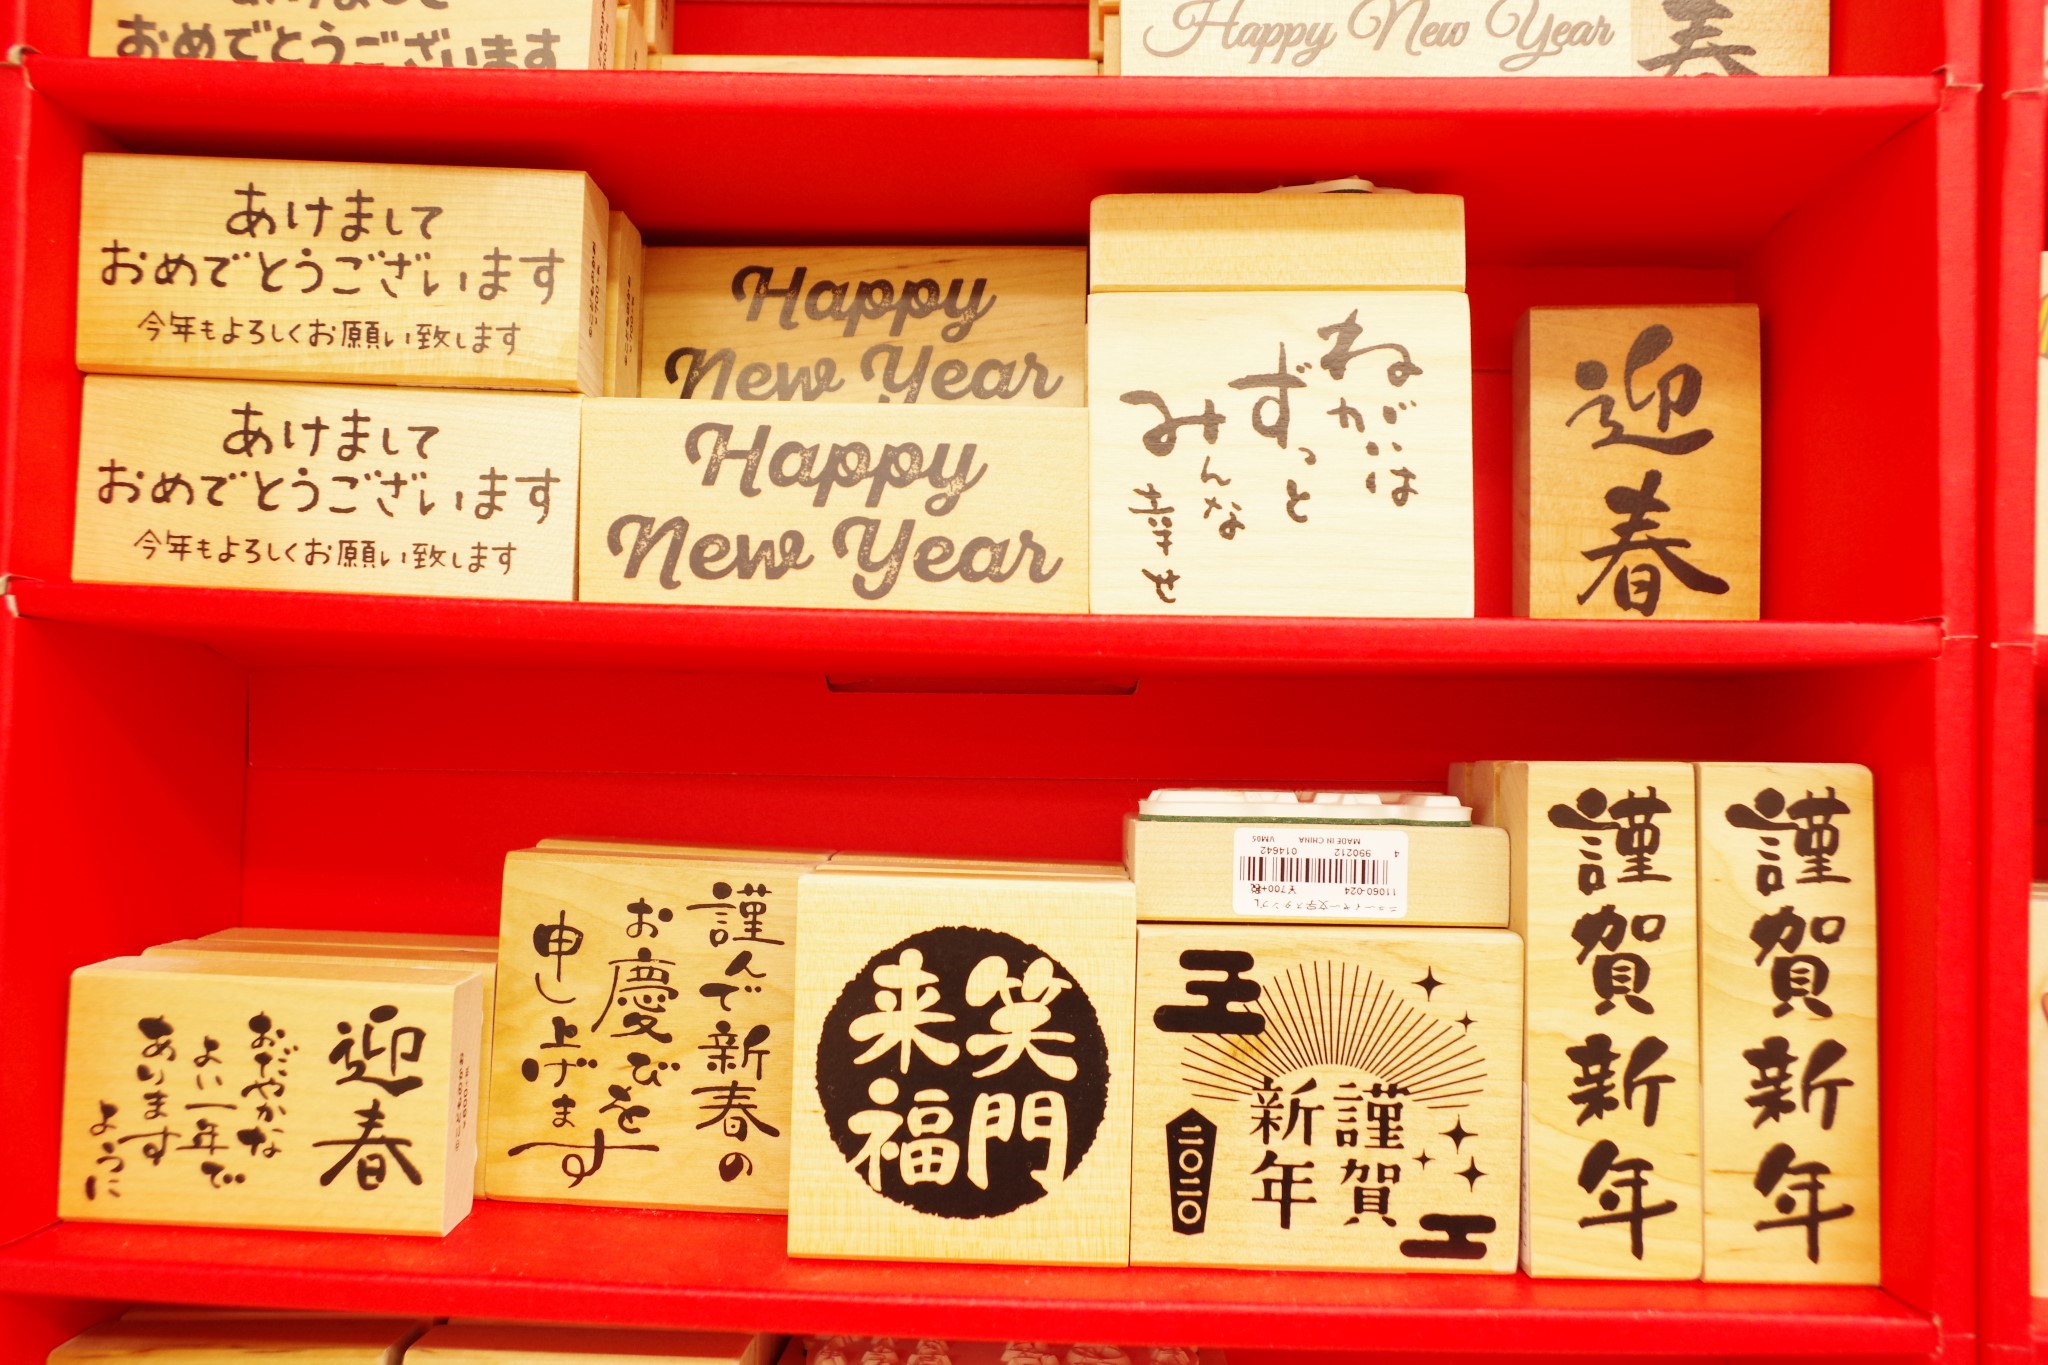 おめでとうございます
Happy New Year
春
あけまして
おめでとうございます
今年もよろしくお願い致します
あけまして
おめでとうございます
今年もよろしくお願い致します
Happy
New Year
Happy
New Year
ねがいは
ずっと
みんな
幸せ
迎春
迎春
おだやかな
よい一年で
あります
ように
謹んで新春の
お慶びを
申し上げます
笑門
来福
MADE IN CHINA
VM05
4 990212 014642
11060-024
¥700+税
謹賀
新年
二〇二〇
謹賀新年
謹賀新年